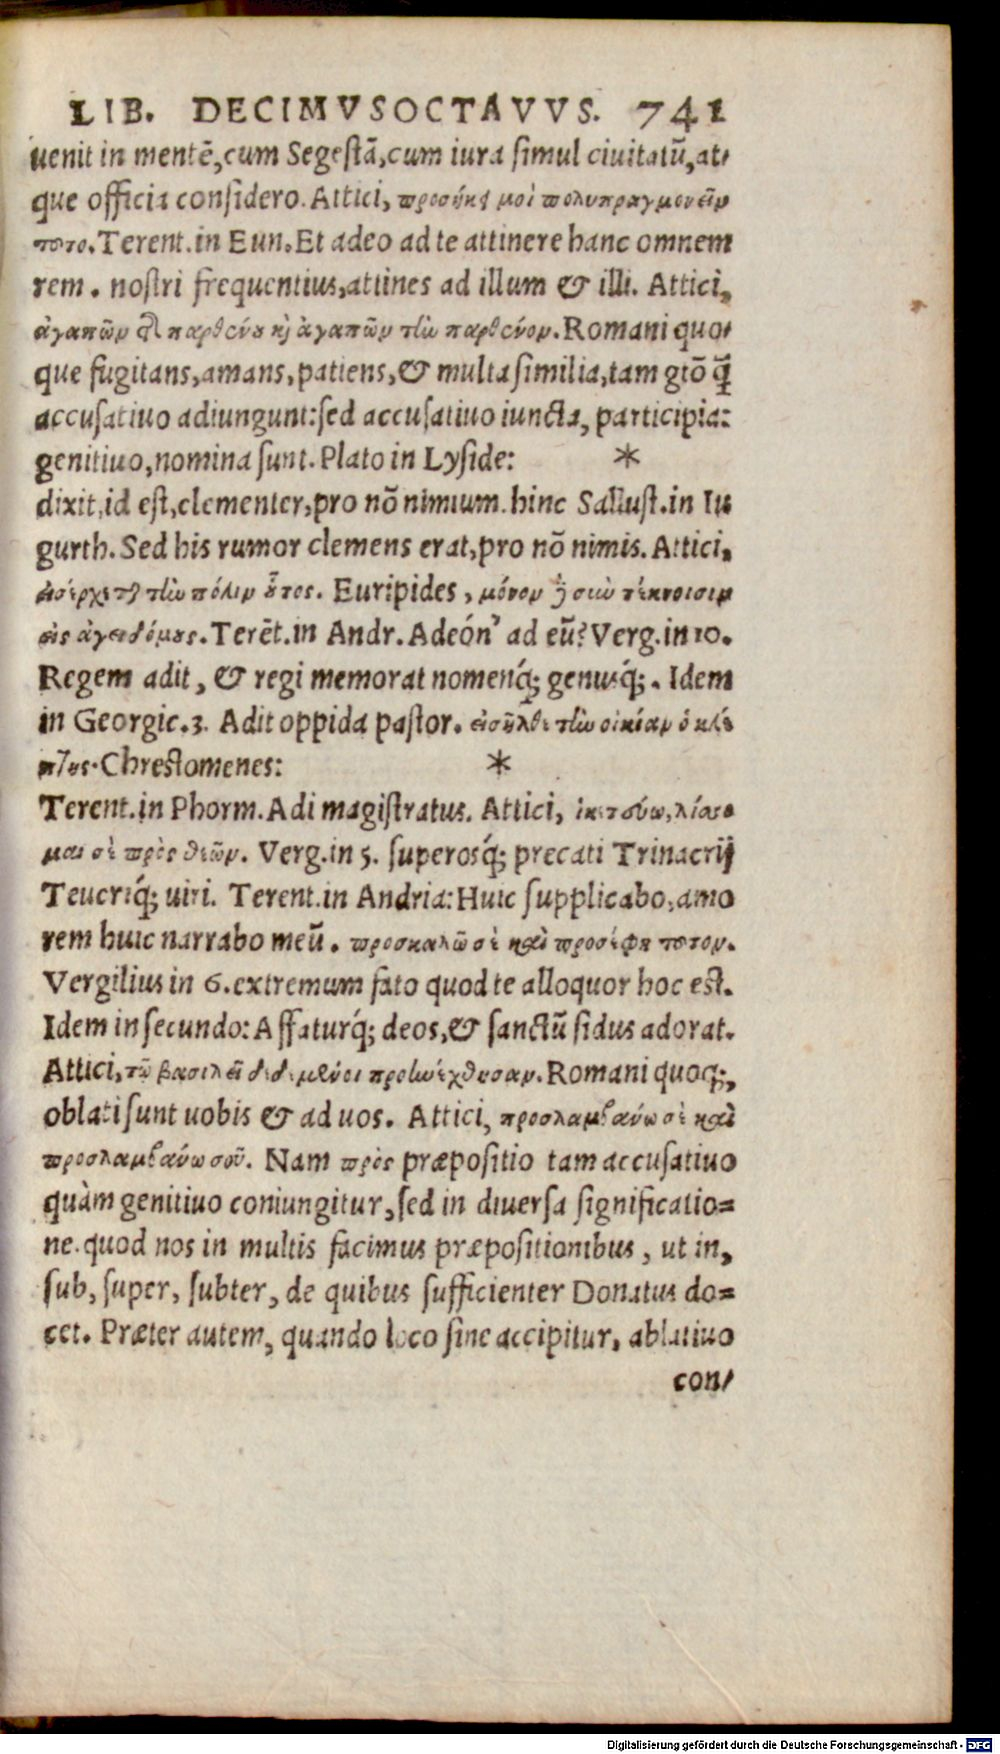 LIB. DECIMVSOCTAVVS. 741
uenit in mentē, cum Segestā, cum iura simul ciuitatū, at⸗
que officia considero. Attici, προσήκει μοὶ πολυπραγμονεῖν
τοῦτο. Terent. in Eun. Et adeo ad te attinere hanc omnem
rem. nostri frequentius, attines ad illum & illi. Attici,
ἀγαπῶν τῆς παρθένου καὶ ἀγαπῶν τὴν παρθένον. Romani quo⸗
que fugitans, amans, patiens, & multa similia, tam gtō q̄
accusatiuo adiungunt: sed accusatiuo iuncta, participia:
genitiuo, nomina sunt. Plato in Lyside: *
dixit, id est, clementer, pro nō nimium. hinc Sallust. in Iu
gurth. Sed his rumor clemens erat, pro nō nimis. Attici,
εἰσέρχεται τὴν πόλιν οὗτος. Euripides, μόνον σὺν τέκνοισιν
εἰς δόμους. Terēt. in Andr. Adeón' ad eū? Verg. in 10.
Regem adit, & regi memorat nomenq́; genusq́;. Idem
in Georgic. 3. Adit oppida pastor. εἰσῆλθε τὴν οἰκίαν ὁ κλέ
πτης. Chrestomenes: *
Terent. in Phorm. Adi magistratus. Attici, ἱκετεύω, λίσσο
μαι σὲ πρὸς θεῶν. Verg. in 5. superosq́; precati Trinacrij
Teucriq́; uiri. Terent. in Andria: Huic supplicabo, amo
rem huic narrabo meū. προσκαλῶ σὲ καὶ προσέφη τοῦτον.
Vergilius in 6. extremum fato quod te alloquor hoc est.
Idem in secundo: Affaturq́; deos, & sanctū sidus adorat.
Attici, τῷ βασιλεῖ δεδεμένοι προσηνέχθησαν. Romani quoq;,
oblati sunt uobis & ad uos. Attici, προσλαμβάνω σὲ καὶ
προσλαμβάνω σοῦ. Nam πρὸς præpositio tam accusatiuo
quàm genitiuo coniungitur, sed in diuersa significatio=
ne. quod nos in multis facimus præpositionibus, ut in,
sub, super, subter, de quibus sufficienter Donatus do=
cet. Præter autem, quando loco sine accipitur, ablatiuo
con⸗
Digitalisierung gefördert durch die Deutsche Forschungsgemeinschaft - DFG